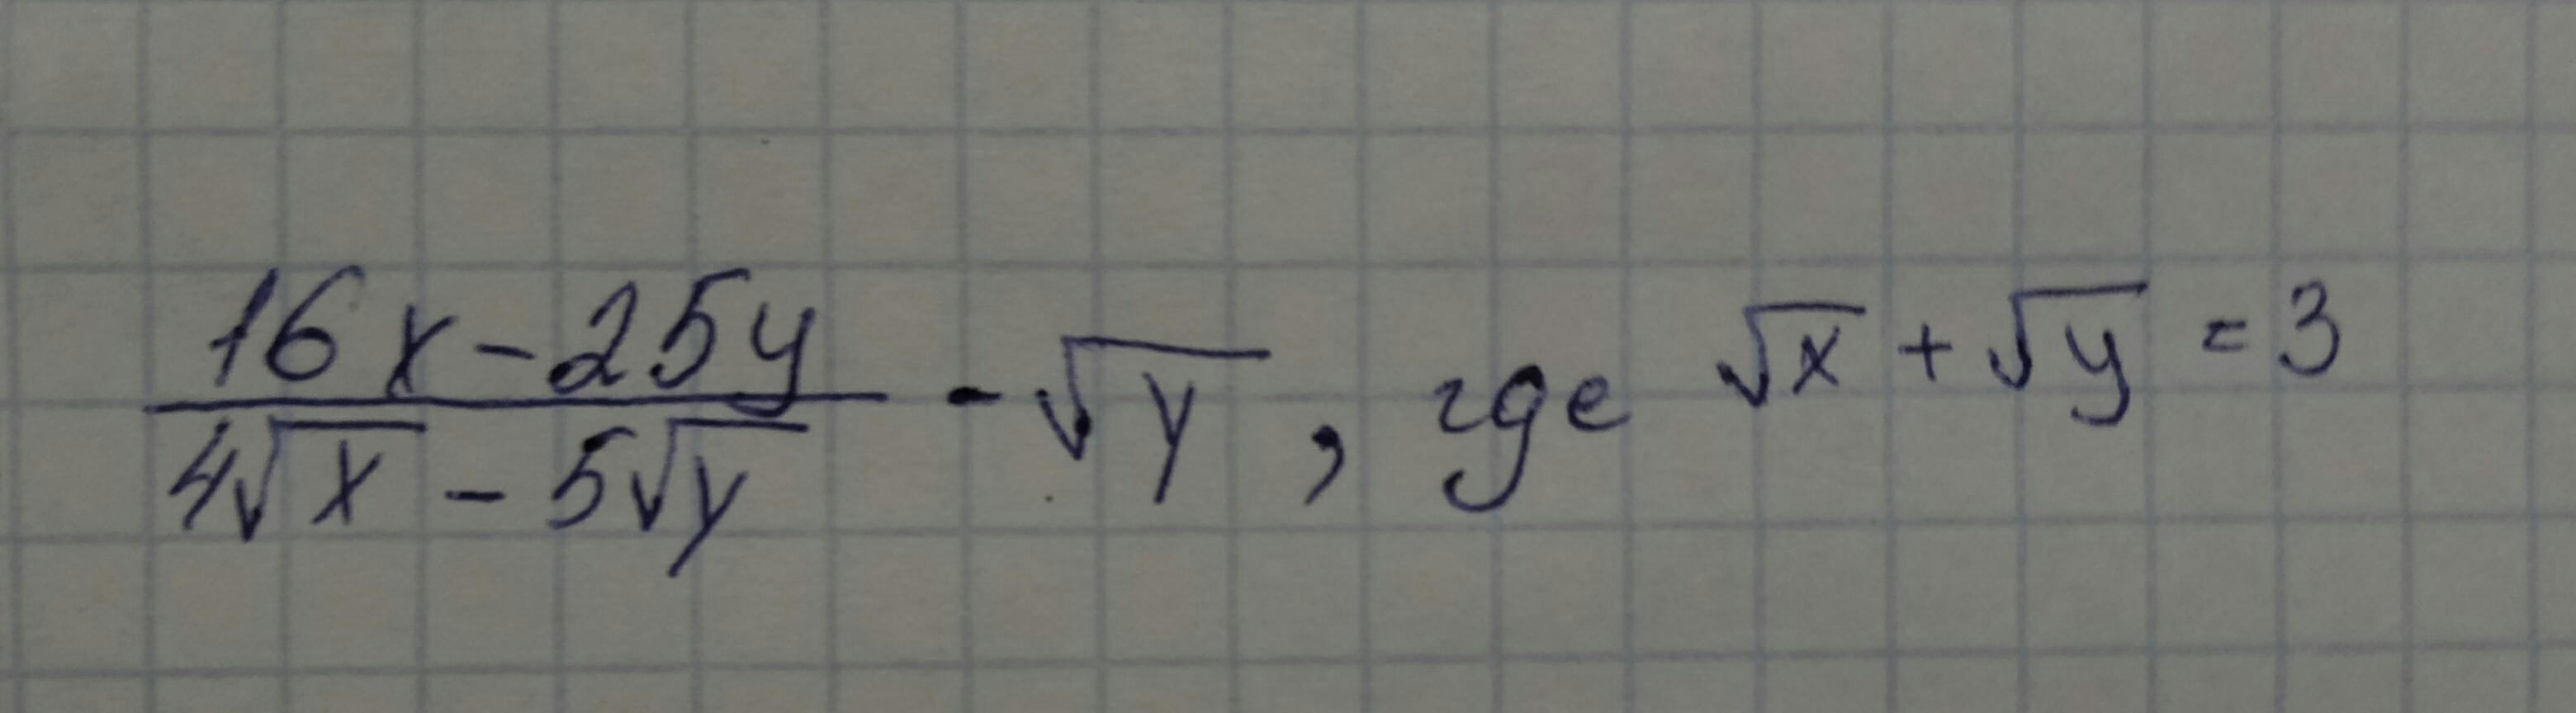 \frac{16x-25y}{4\sqrt{x}-5\sqrt{y}} - \sqrt{y}, где \sqrt{x} + \sqrt{y} = 3